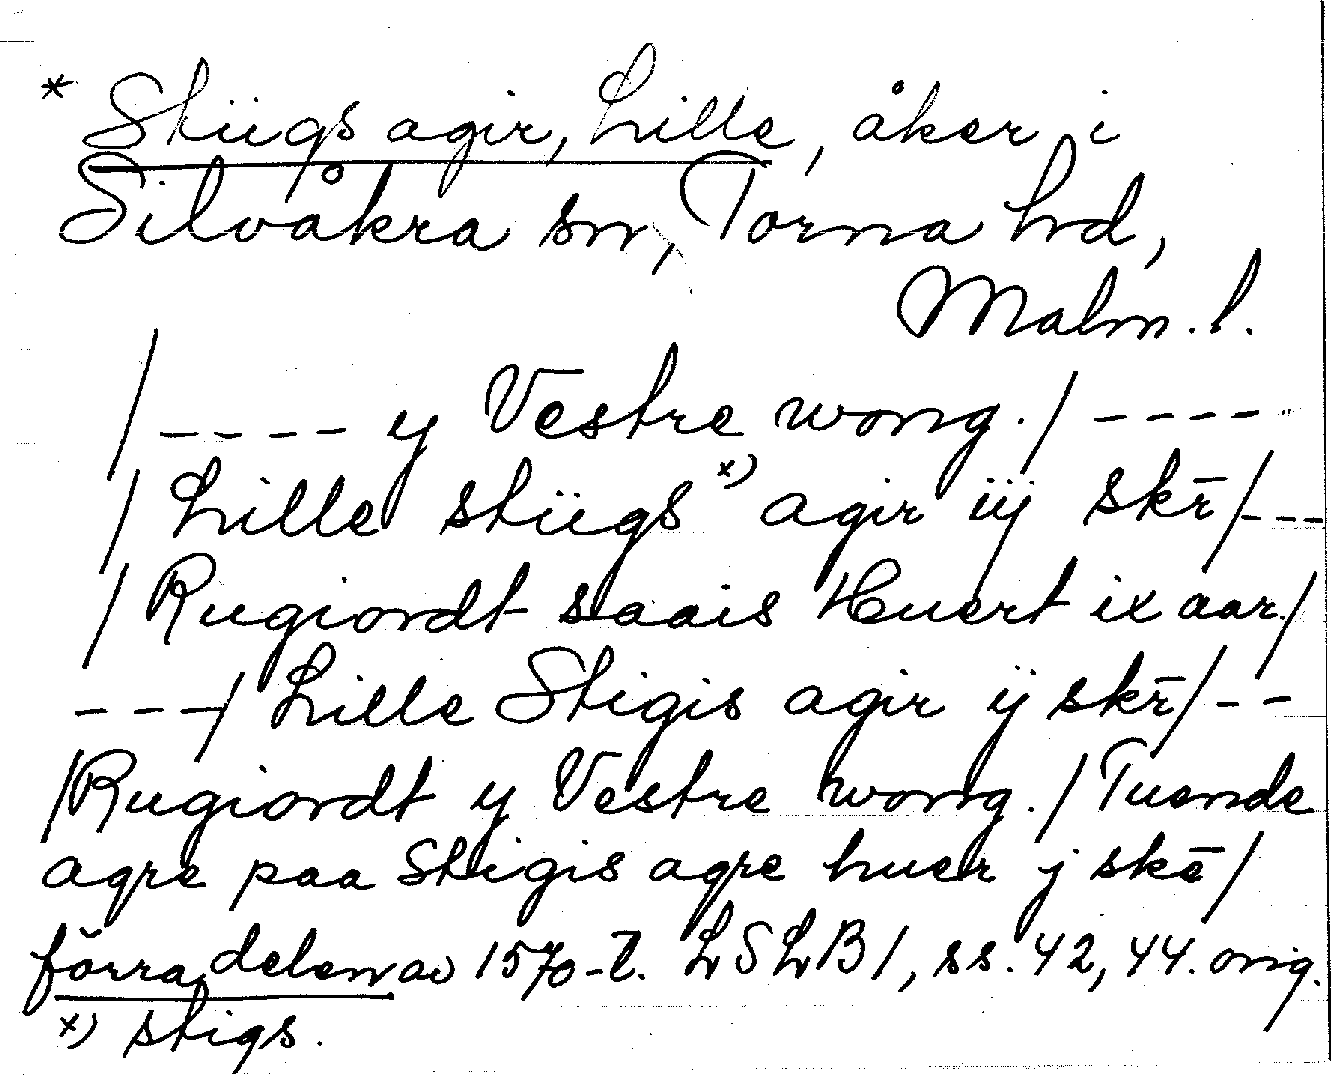 * Stiigs agir, Lille, åker i
Silvåkra sn, Torna hd,
Malm.l.
/ ---- y Vestre wong./ ----
/ Lille stiigs x) agir iij skr̄/---
/ Rugiordt saais Huert ix aar./
---/ Lille Stigis agir ij skr̄/--
/Rugiordt y Vestre wong./Tuende
agre paa Stigis agre huer j skē/
förra delen av 1570-t. LSLB1, ss. 42, 44. orig.
x) stigs.